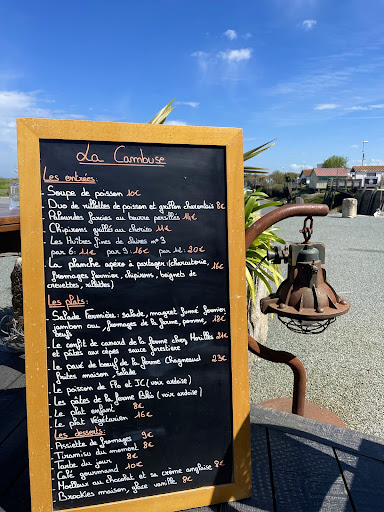 La Cambuse
Les entrées:
Soupe de poisson 10€
Duo de rillettes de poisson et grillon charentais 8€
Palourdes farcies au beurre persillé 14€
Chipirons grillés au chorizo 11€
Les Huîtres fines de claires n°3
par 6: 11€ par 9: 16€ par 12: 20€
La planche apéro à partager: (charcuterie, 16€
fromages fermier, chipirons, beignets de
crevettes, rillettes)
Les plats:
Salade Fermière: salade, magret fumé fermier
jambon cru, fromages de la ferme, pomme, 12€
oeufs
Le confit de canard de la ferme chez Morillés 21€
et pâtes aux cèpes sauce forestière
Le pavé de boeuf de la ferme Chagneaud 23€
frites maison, salade
Le poisson de Flo et JC (voir ardoise)
Les pâtes de la ferme (voir ardoise)
Le plat enfant 8€
Le plat Végétarien 16€
Les desserts:
Assiette de fromages 9€
Tiramisu du moment 8€
Tarte du jour 8€
Café gourmand 10€
Moelleux au chocolat et sa crème anglaise 8€
Brookies maison, glace vanille 8€